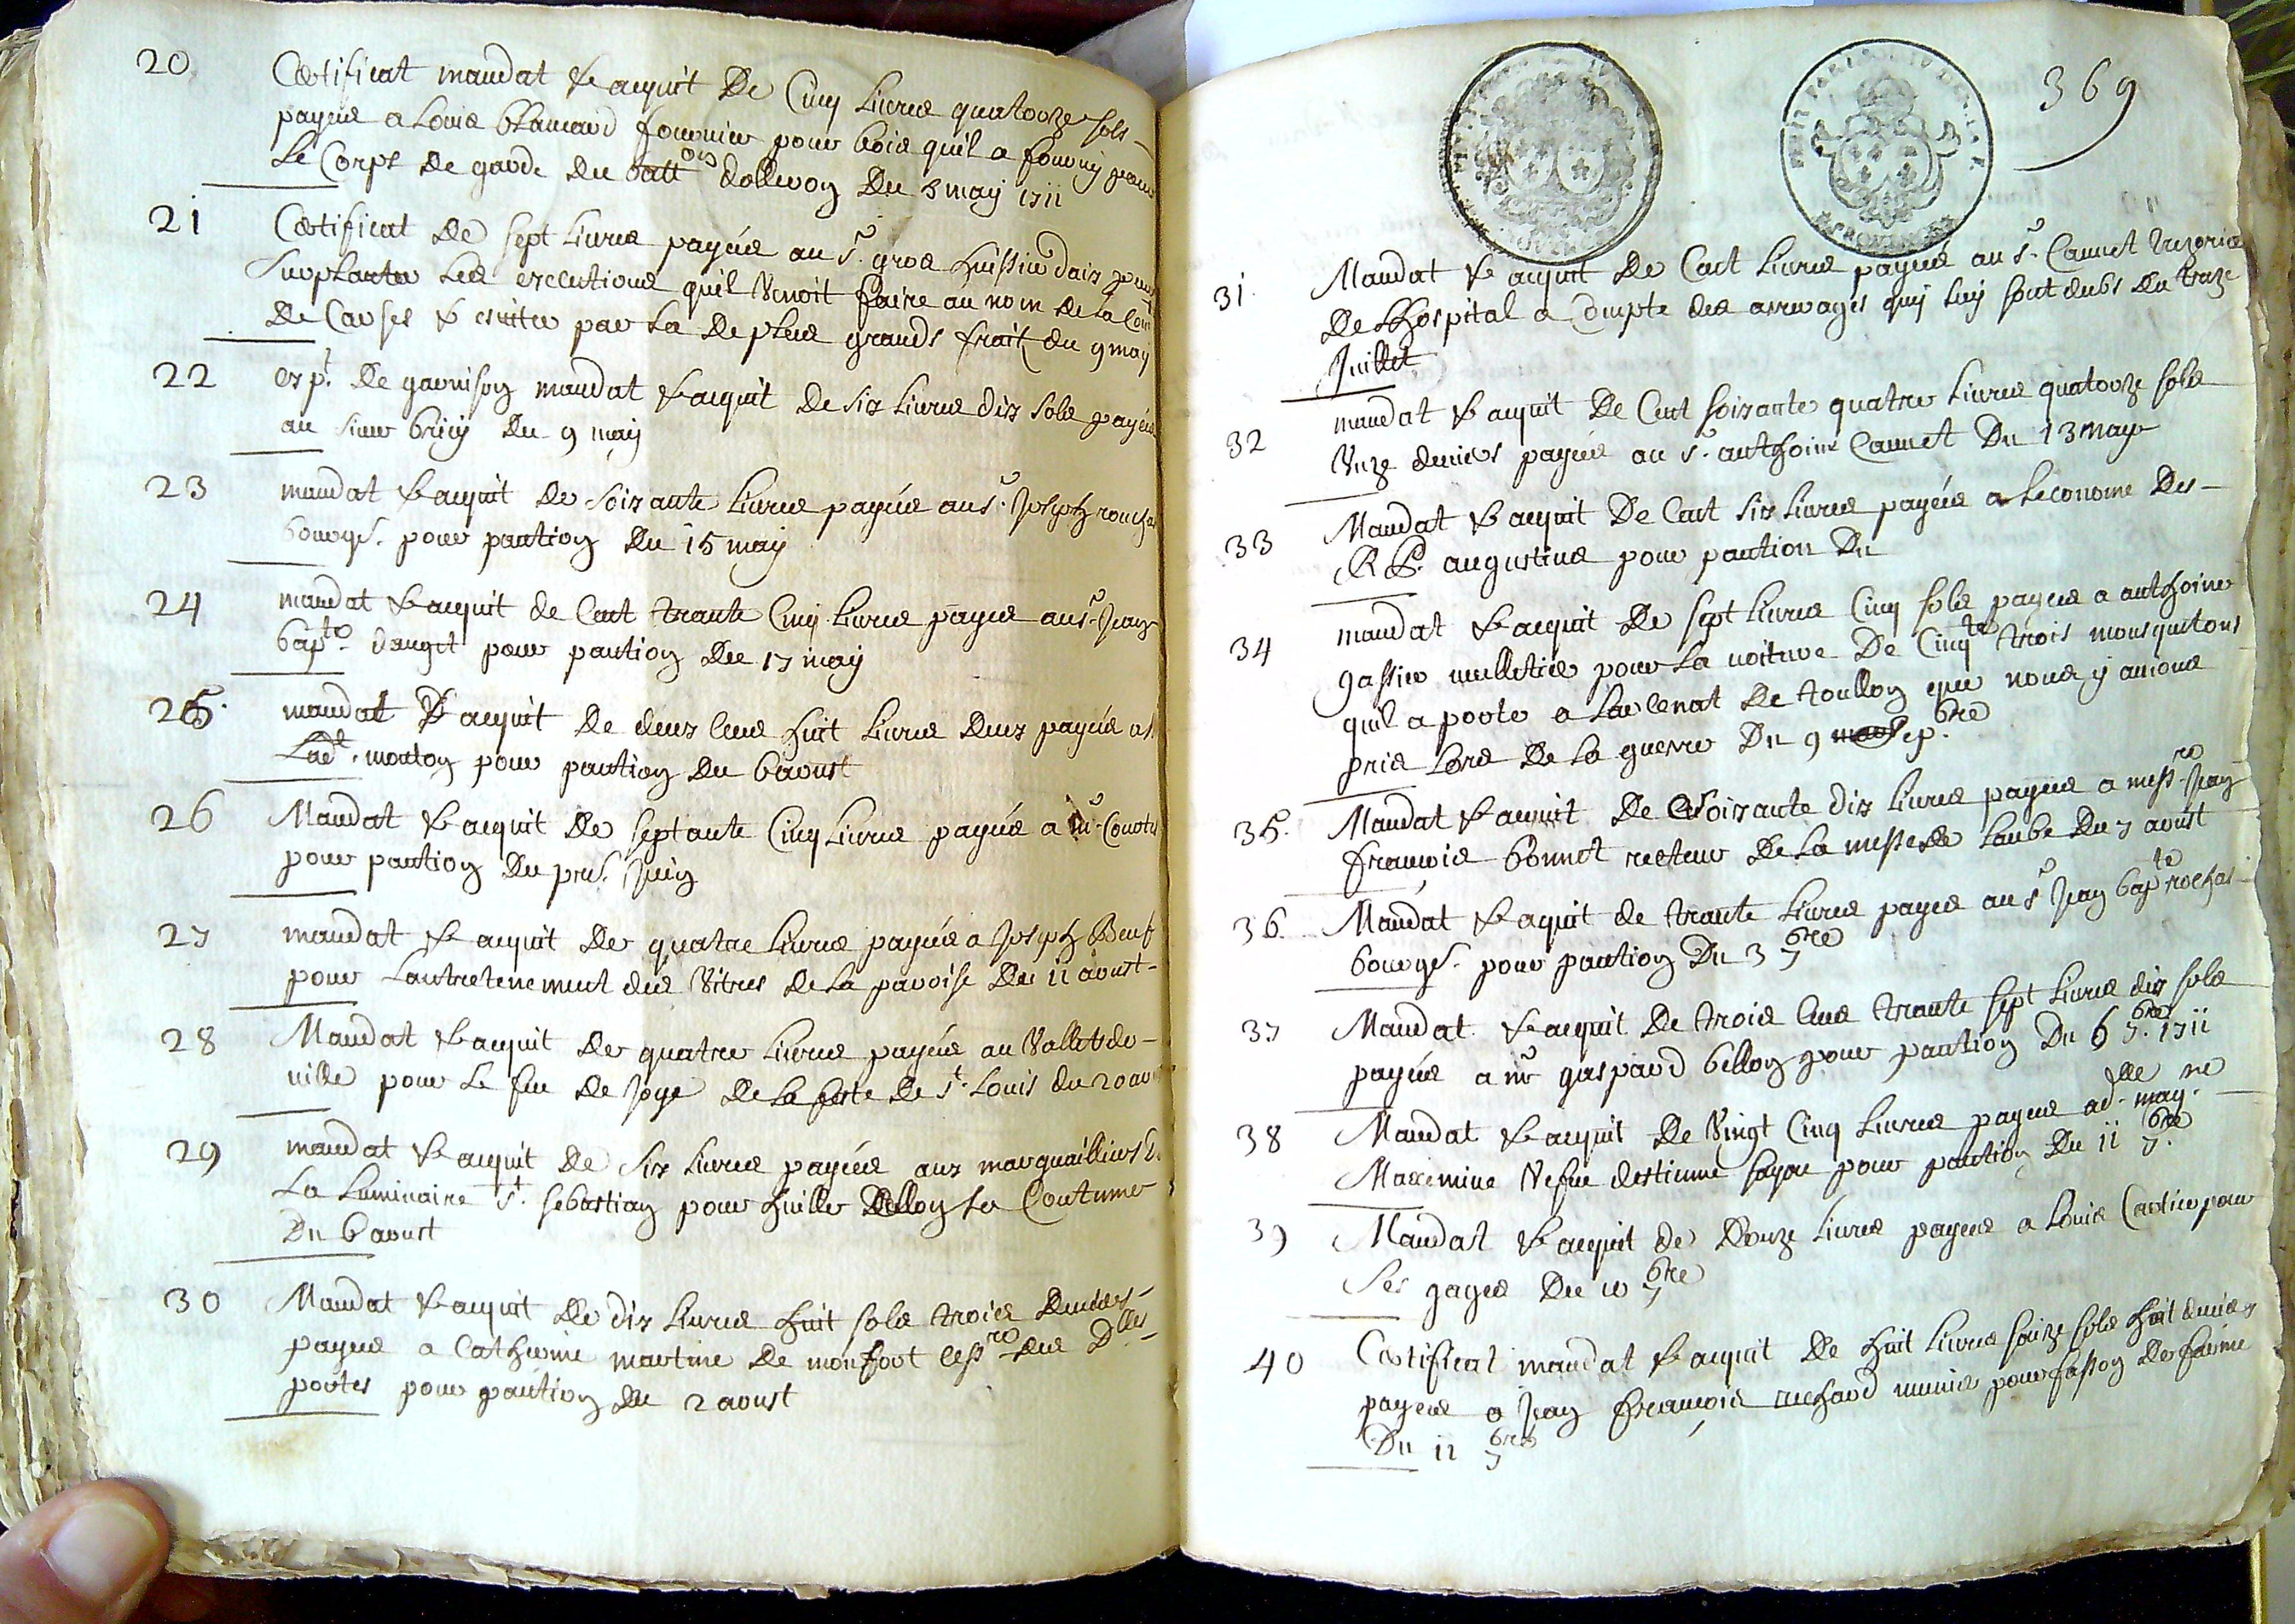 20 Certificat mandat & acquit De Cinq Livres quatorze sols
payes a Louis blancard fournier pour bois quil a fourny pour
Le Corps de garde du batt.ons dolleron Du 3 may 1711
21 Certificat De sept Livres payées au s.r gros huissier daix pour
les exécutions quil Venoit faire au nom de la Com.té
De Carses & esvitter par la De pleus grands frait du 9 may
22 exp.t De garnison mandat & acquit De six Livres dix sols payées
au sieur Du 9 may
23 mandat & acquit De soixante Livres payées au s.r Joseph
bourgs. pour pantion Du 15 may
24 mandat & acquit de Cent trante Cinq Livres payes au s.r Jean
bap.te pour pantion Du 17 may
25. mandat & acquit De deux Cens huit Livres Deux payées a
Lad.t mouton pour pantion Du 6 aoust
26 Mandat & acquit De septante Cinq Livres payées a m.r
pour pantion Du pre.r Juin
27 mandat & acquit De quatre Livres payées a Joseph Beuf
pour Lantretenement des Vitres De la paroisse Du 11 aoust
28 Mandat & acquit De quatre Livres payées au Vallet de
ville pour Le feu De Joye De la feste De s.t Louis du 20
29 mandat & acquit De six Livres payées aux marguilliers
La Luminaire s.t sebastian pour huille sellon la Coutume
Du 6 aoust
30 Mandat & acquit De dix Livres huit sols trois deniers
payes a Catherine martine De monfort cess.re des D.lles
portes pour pantion du 2 aoust
369
31. Mandat & acquit De Cent Livres payées au s.r Cannet Trezorier
De Lhospital a Compte des arrerages quy luy sont deubs du traize
Juillet
32 mandat & acquit De Cent soixante quatre Livres quatorze sols
Unze deniers payées au s.r anthoine Cannet Du 13 may
33 Mandat & acquit De Cent six Livres payées a Leconome Des
R P. augustins pour pantion Du
34 mandat & acquit De sept Livres Cinq sols payes a anthoine
gassier mulletier pour La voiture De Cinq.te trois mousquetons
quil a porte a Larcenat De toullon que nous y avions
pris Lors De la guerre Du 9 sep.bre
35. Mandat & acquit De soixante dix Livres payes a mess.re Jean
francois bonnet recteur De la messe De Laube Du 7 aoust
36. Mandat & aquit de trante Livres payes au s.r Jean bap.te rochas
bourgs. pour pantion Du 3 7bre
37 Mandat & acquit De trois Cens trante sept Livres dix sols
payées a m.r gaspard bellon pour pantion Du 6 7.bre 1711
38 Mandat & acquit De Vingt Cinq Livres payes a d.lle mag.ne
Maximine Vefve destienne pour pantion Du 11 7.bre
39 Mandat & acquit de Douze Livres payes a Louis Cartier pour
Ses gages Du 10 7bre
40 Certificat mandat & acquit De huit Livres saize sols huit deniers
payes a Jean francois richard munier pour fasson De farine
Du 11 7bre